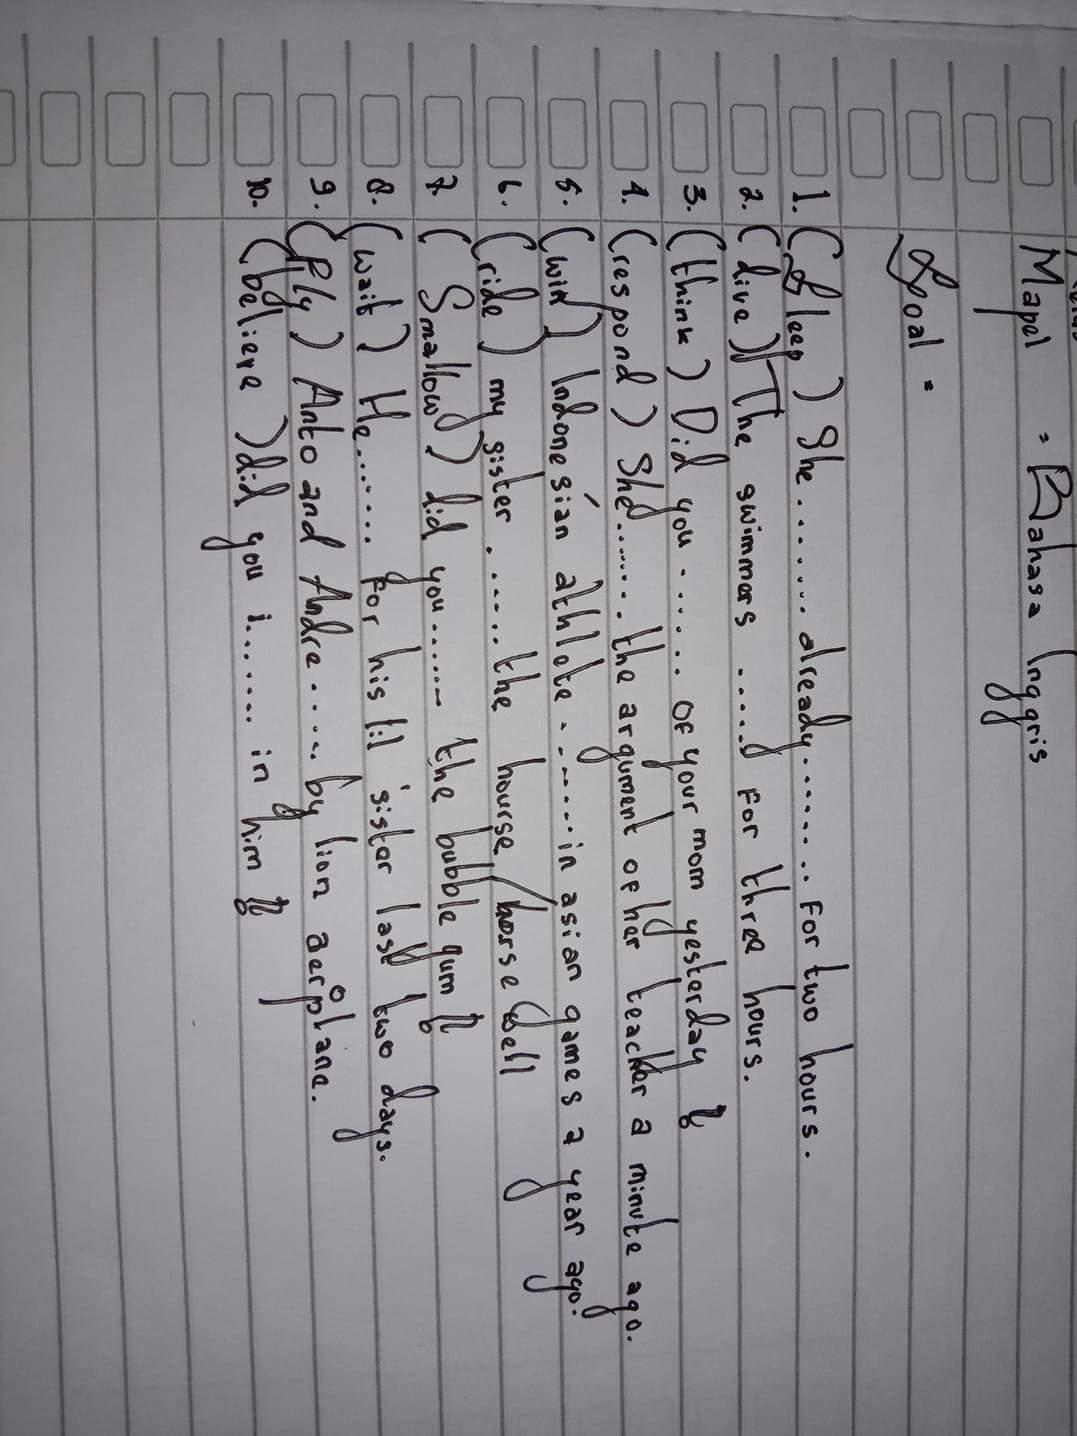 Mapel = Bahasa Inggris
Soal =
1. (Sleep) She........ already....... For two hours.
2. (dive) The swimmers ..... For three hours.
3. (think) Did you ...... OF your mom yesterday ?
4. (respond) She....... the argument of her teacher a minute ago.
5. (win) Indonesian athlete ...... in asian games a year ago.
6. (ride) my sister ...... the hourse / horse well
7. (Smallow) did you...... the bubble gum ?
8. (wait) He....... For his lil sister last two days.
9. (Fly) Anto and Andre ..... by lion aeroplane.
10. (believe) did you i...... in him ?